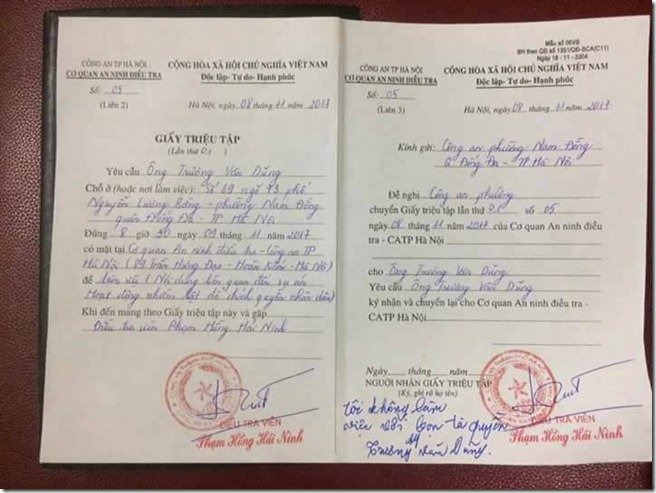 CÔNG AN TP HÀ NỘI
CƠ QUAN AN NINH ĐIỀU TRA
Số: 05
(Liên 2)
CỘNG HÒA XÃ HỘI CHỦ NGHĨA VIỆT NAM
Độc lập- Tự do- Hạnh phúc
Hà Nội, ngày 08 tháng 11 năm 2017
GIẤY TRIỆU TẬP
(Lần thứ 01)
Yêu cầu Ông Trương Văn Dũng
Chỗ ở (hoặc nơi làm việc): Số 69 ngõ 73 phố
Nguyễn Lương Bằng - phường Nam Đồng
quận Đống Đa - TP Hà Nội
Đúng 8 giờ 30 ngày 09 tháng 11 năm 2017
có mặt tại Cơ quan An ninh điều tra - Công an TP
Hà Nội (89 Trần Hưng Đạo - Hoàn Kiếm - Hà Nội)
để làm việc (Nội dung liên quan đến vụ án
Hoạt động nhằm lật đổ chính quyền nhân dân)
Khi đến mang theo Giấy triệu tập này và gặp
Điều tra viên Phạm Hồng Hải Ninh
ĐIỀU TRA VIÊN
Phạm Hồng Hải Ninh
Mẫu số 06VB
BH theo QĐ số 1351/QĐ-BCA(C11)
Ngày 18 - 11 - 2004
CÔNG AN TP HÀ NỘI
CƠ QUAN AN NINH ĐIỀU TRA
Số: 05
(Liên 3)
CỘNG HÒA XÃ HỘI CHỦ NGHĨA VIỆT NAM
Độc lập- Tự do- Hạnh phúc
Hà Nội, ngày 08 tháng 11 năm 2017
Kính gửi: Công an phường Nam Đồng
Q Đống Đa - TP Hà Nội
Đề nghị Công an phường
chuyển Giấy triệu tập lần thứ 01 số 05
ngày 08 tháng 11 năm 2017 của Cơ quan An ninh điều
tra - CATP Hà Nội
cho Ông Trương Văn Dũng
Yêu cầu Ông Trương Văn Dũng
ký nhận và chuyển lại cho Cơ quan An ninh điều tra -
CATP Hà Nội
Ngày tháng năm
NGƯỜI NHẬN GIẤY TRIỆU TẬP
(Ký, ghi rõ họ tên)
tôi không làm
việc với bọn tà quyền
Trương Văn Dũng.
ĐIỀU TRA VIÊN
Phạm Hồng Hải Ninh